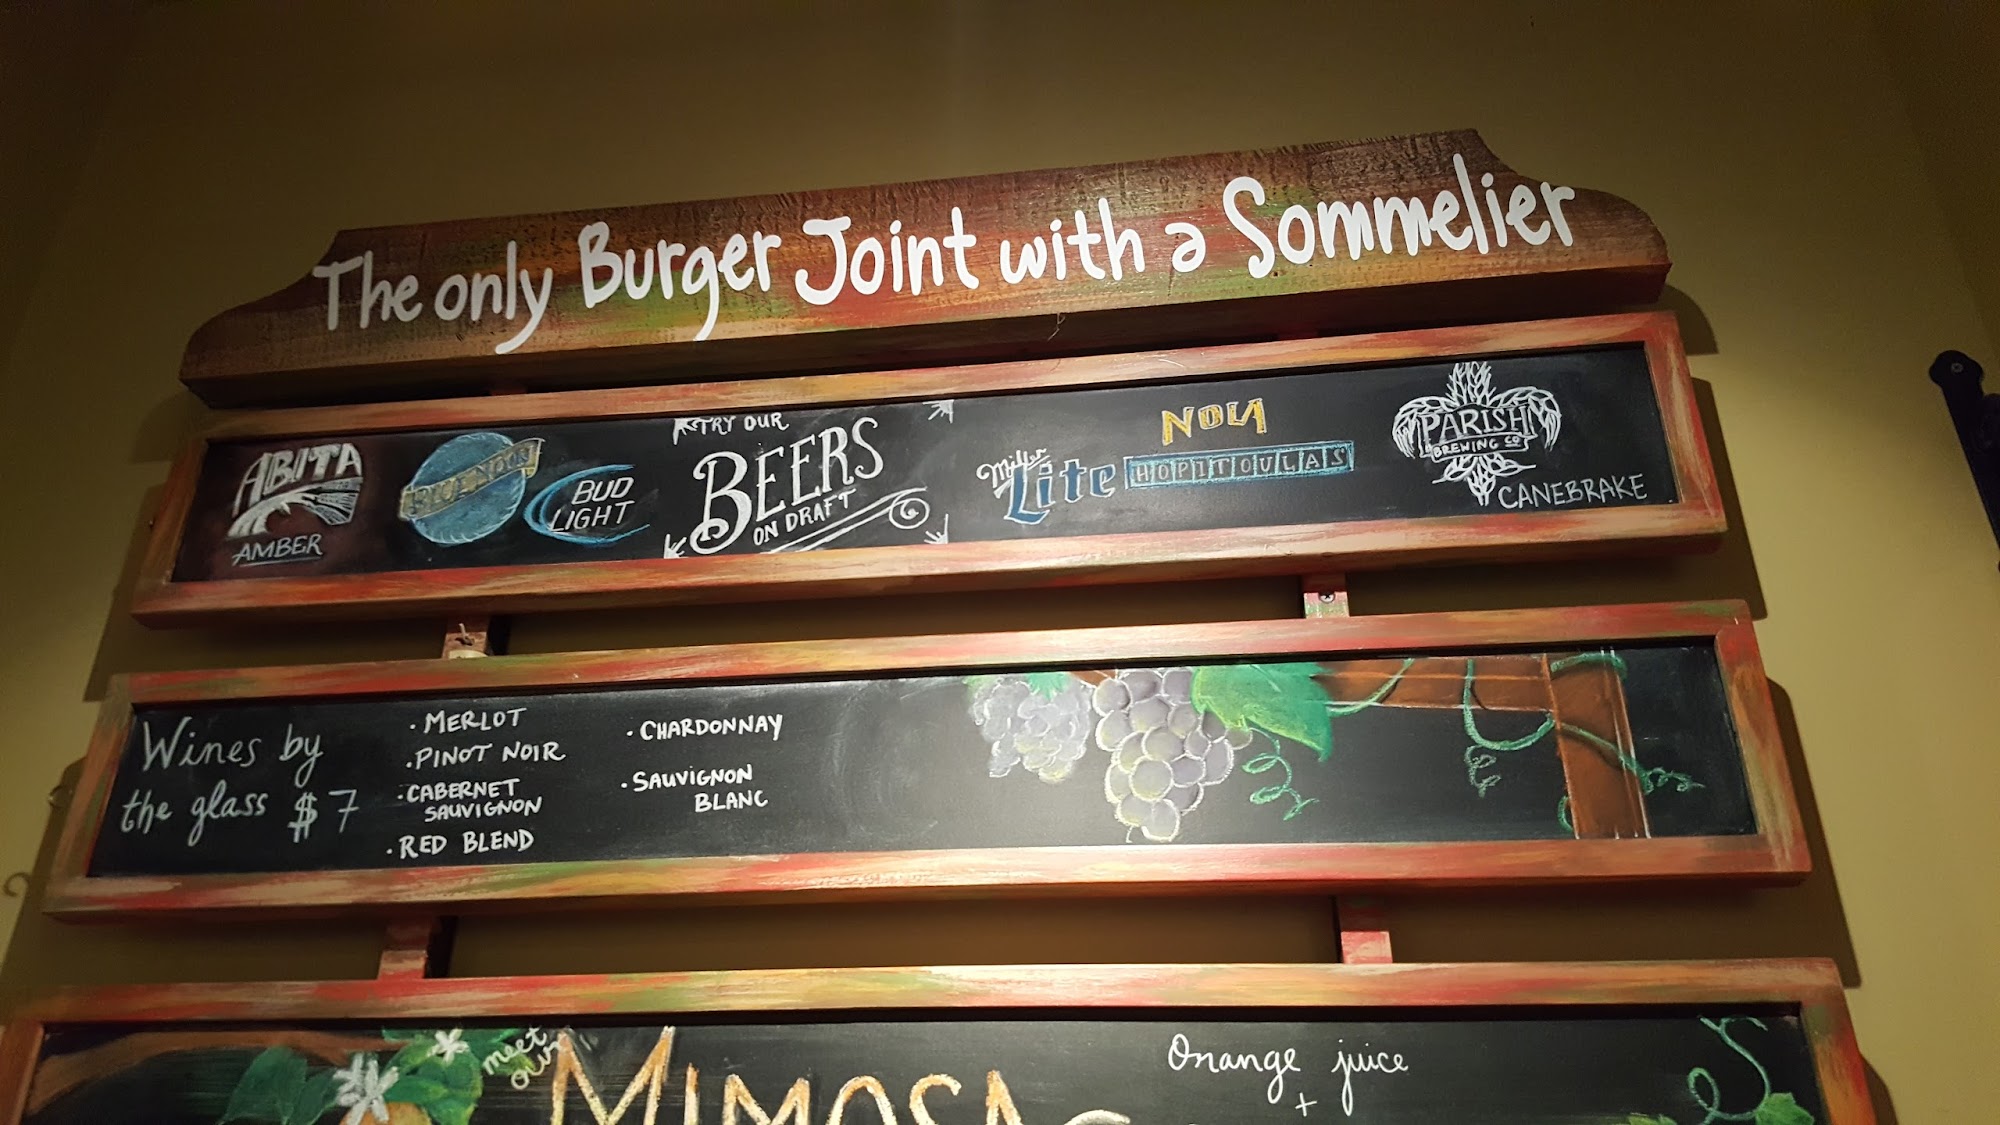 The only Burger Joint with a Sommelier
ABITA
AMBER
BLUE MOON
BUD
LIGHT
TRY OUR
BEERS
ON DRAFT
Miller
Lite
NOLA
HOPITOULAS
PARISH
BREWING CO
CANEBRAKE
Wines by
the glass $7
• MERLOT
• PINOT NOIR
• CABERNET
SAUVIGNON
• RED BLEND
• CHARDONNAY
• SAUVIGNON
BLANC
meet
our
MIMOSA
Orange juice
+